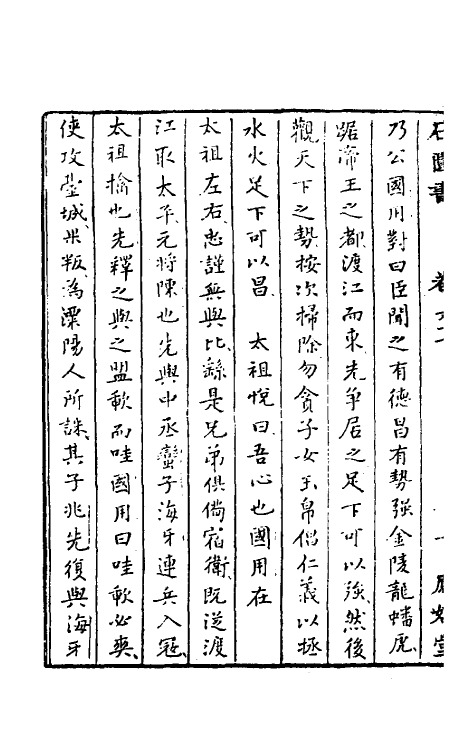 石匱書　卷六十一　鳳嬉堂
乃公國用對曰臣聞之有德昌有勢强金陵龍蟠虎
踞帝王之都渡江而東先爭居之足下可以強然後
觀天下之勢按次掃除勿貪子女玉帛倡仁義以拯
水火足下可以昌　太祖悅曰吾心也國用在
太祖左右忠謹無與比繇是兄弟俱備宿衛既從渡
江取太平元將陳也先與中丞蠻子海牙連兵入寇
太祖擒也先釋之與之盟歃而哇國用曰哇歃必爽
使攻臺城果叛為溧陽人所誅其子兆先復與海牙